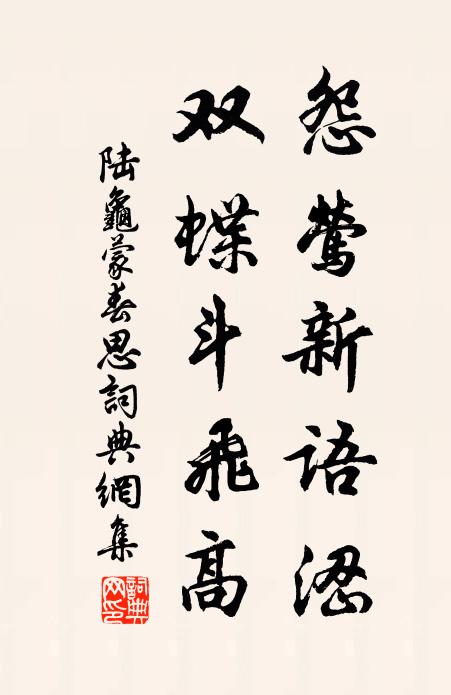 怨莺新语涩
双蝶斗飛高
陆龜蒙春思詞典網集
詞典网印